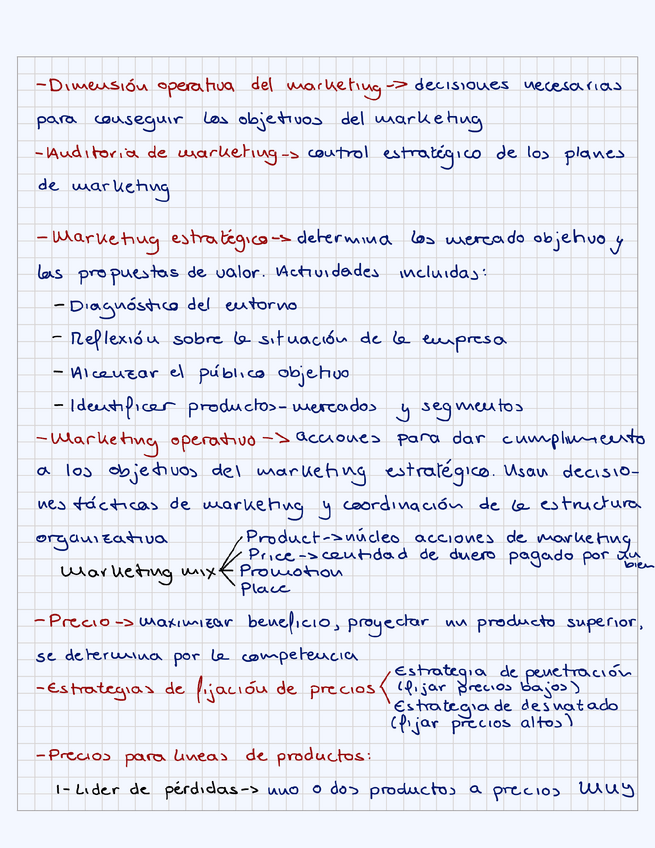 -Dimensión operativa del marketing-> decisiones necesarias
para conseguir los objetivos del marketing
-Auditoría de marketing-> control estratégico de los planes
de marketing
-Marketing estratégico-> determina los mercado objetivo y
las propuestas de valor. Actividades incluidas:
- Diagnóstico del entorno
- Reflexión sobre la situación de la empresa
- Alcanzar el público objetivo
- Identificar productos-mercados y segmentos
-Marketing operativo-> acciones para dar cumplimiento
a los objetivos del marketing estratégico. Usan decisio-
nes tácticas de marketing y coordinación de la estructura
organizativa
Marketing mix
Product->núcleo acciones de marketing
Price->cantidad de dinero pagado por un
bien
Promotion
Place
-Precio-> maximizar beneficio, proyectar un producto superior,
se determina por la competencia
-Estrategias de fijación de precios
Estrategia de penetración
(fijar precios bajos)
Estrategia de desnatado
(fijar precios altos)
-Precios para líneas de productos:
1-Lider de pérdidas-> uno o dos productos a precios muy